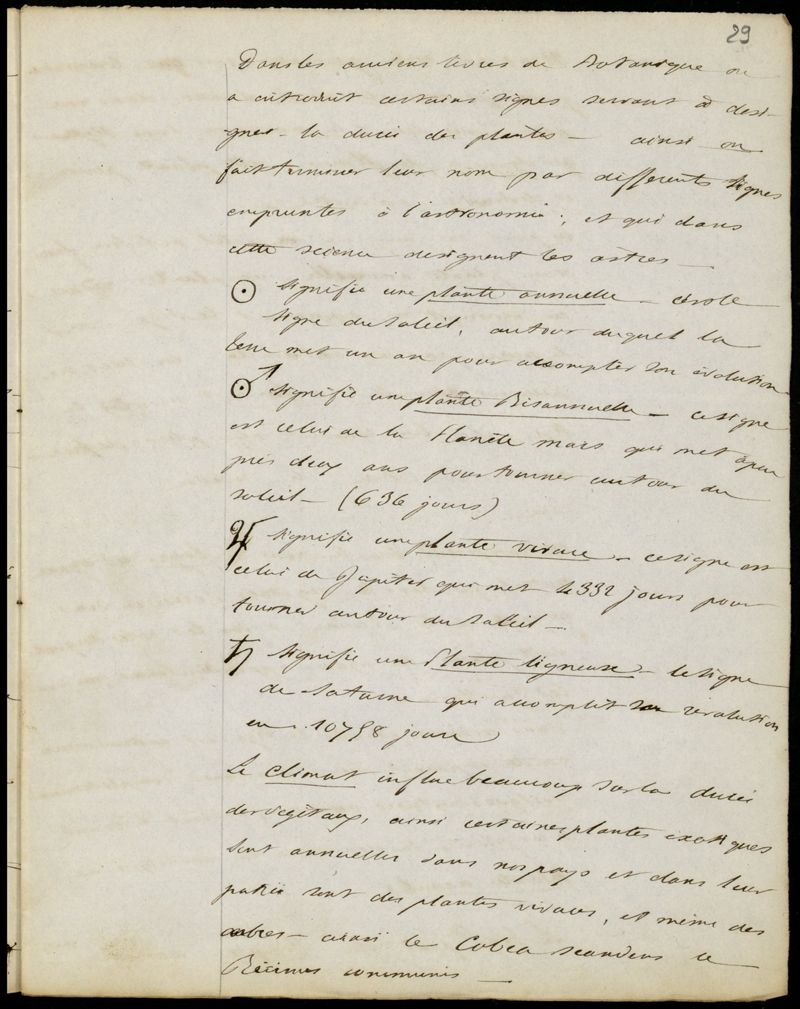 29
Dans les anciens livres de Botanique on
a introduit certains signes servant à desi-
gner la durée des plantes — ainsi on
fait terminer leur nom par differents signes
empruntés à l'astronomie; et qui dans
cette science designent les astres —
☉ signifie une plante annuelle — c'est le
signe du Soleil, autour duquel la
terre met un an pour accomplir son évolution
☉ signifie une plante Bisannuelle — ce signe
est celui de la Planète mars qui met à peu
près deux ans pour tourner autour du
soleil — (636 jours)
♃ signifie une plante vivace — ce signe est
celui de Jupiter qui met 4332 jours pour
tourner autour du Soleil —
♄ signifie une Plante ligneuse — le signe
de Saturne qui accomplit sa révolution
en 10758 jours
Le climat influe beaucoup sur la durée
des végétaux, ainsi certaines plantes exotiques
sont annuelles dans nos pays et dans leur
patrie sont des plantes vivaces, et même des
arbres — ainsi le Cobea scandens le
Ricinus communis —